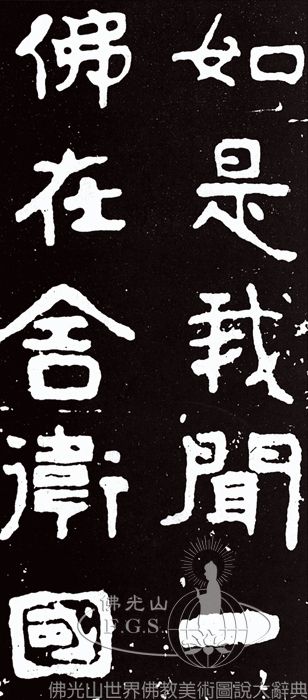 如是我聞一
佛在舍衛國
佛光山
F.G.S.
佛光山世界佛教美術圖說大辭典